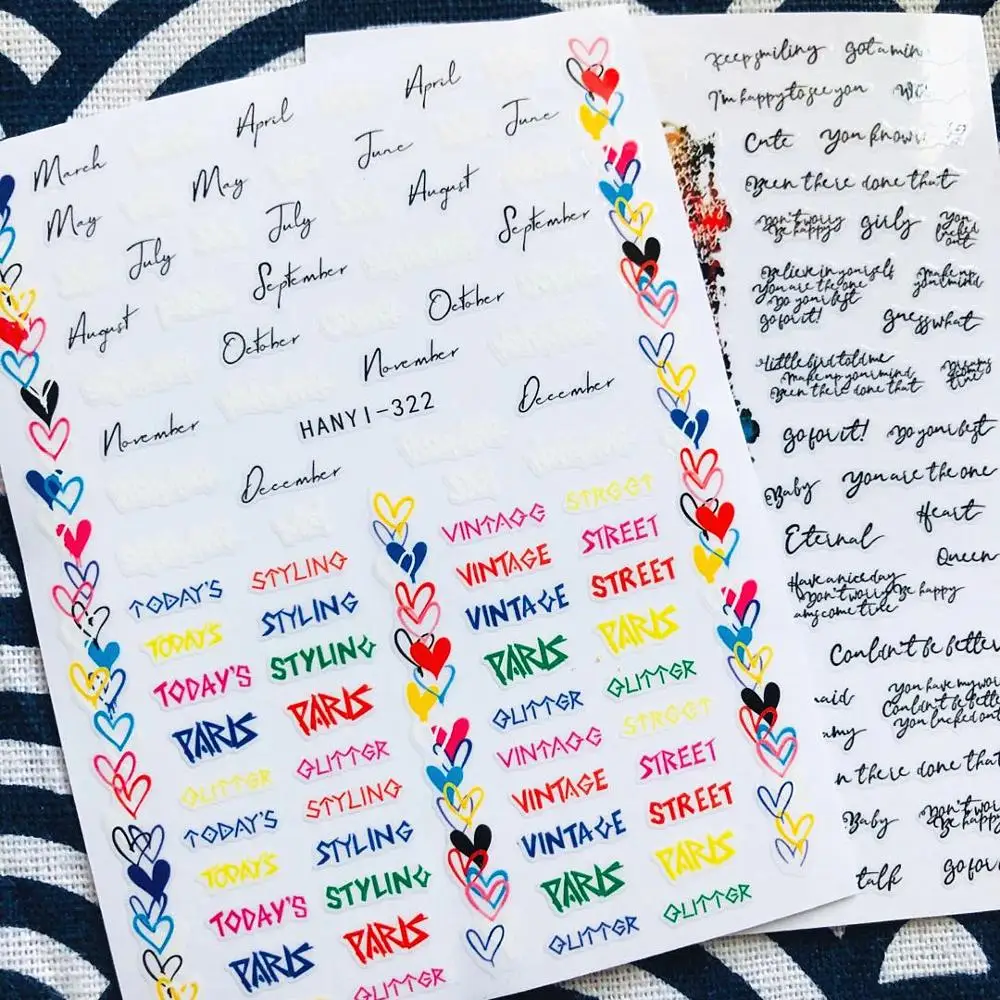 March
April
April
May
May
June
June
July
July
August
August
September
September
October
October
November
November
December
December
HANYI-322
VINTAGE STREET
TODAY'S STYLING VINTAGE STREET
TODAY'S STYLING VINTAGE STREET
TODAY'S STYLING PARIS PARIS
PARIS PARIS GLITTER GLITTER
GLITTER GLITTER VINTAGE STREET
TODAY'S STYLING VINTAGE STREET
TODAY'S STYLING VINTAGE STREET
TODAY'S STYLING PARIS PARIS
PARIS PARIS GLITTER GLITTER
GLITTER
keep smiling got a min
I'm happy to see you
Cute you know
Been there done that
Don't worry
Be happy
girly
you
lucked
out
Believe in yourself
You are the one
Do your best
go for it!
Make up
your mind
guess what
little bird told me
Make up your mind
Been there done that
Dreams
come
true
go for it! Do your best
Baby you are the one
Eternal Heart
Queen
Have a nice day
Don't worry Be happy
Couldn't be better
aid
you have my wor
Couldn't be better
you lucked out
my
n there done that
Baby
Don't wor
Be happy
talk go for